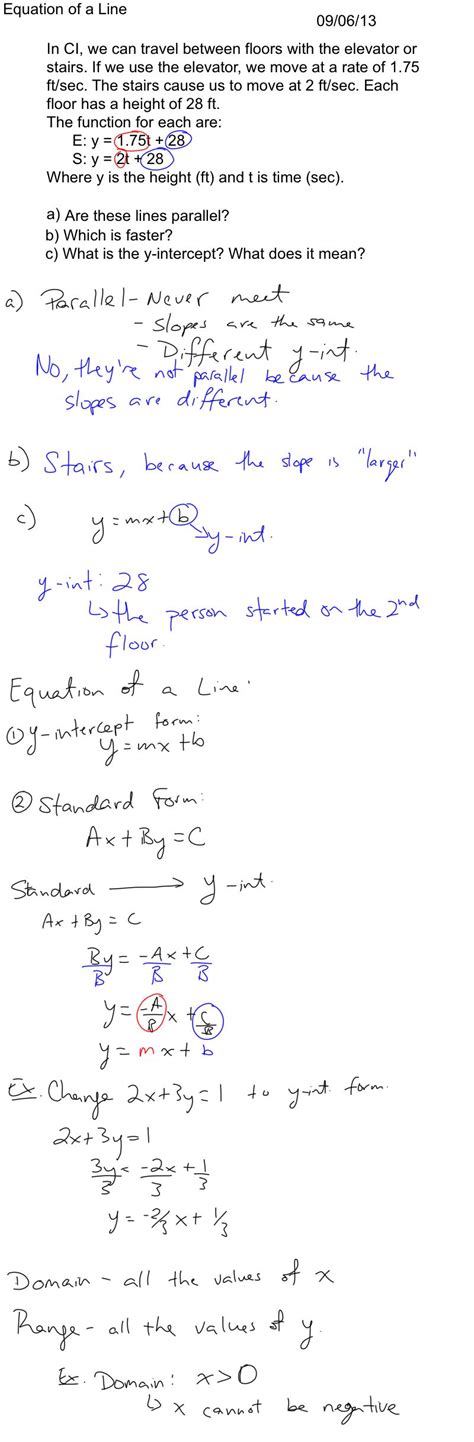 Equation of a Line
09/06/13
In CI, we can travel between floors with the elevator or
stairs. If we use the elevator, we move at a rate of 1.75
ft/sec. The stairs cause us to move at 2 ft/sec. Each
floor has a height of 28 ft.
The function for each are:
E: y = 1.75t + 28
S: y = 2t + 28
Where y is the height (ft) and t is time (sec).
a) Are these lines parallel?
b) Which is faster?
c) What is the y-intercept? What does it mean?
a) Parallel - Never meet
- Slopes are the same
- Different y-int.
No, they're not parallel because the
slopes are different.
b) Stairs, because the slope is "larger"
c) y = mx + b
y-int.
y-int: 28
↳ the person started on the 2nd
floor.
Equation of a Line:
① y-intercept form:
y = mx + b
② Standard Form:
Ax + By = C
Standard → y-int.
Ax + By = C
By/B = -Ax/B + C/B
y = -A/B x + C/B
y = mx + b
Ex. Change 2x + 3y = 1 to y-int. form.
2x + 3y = 1
3y/3 = -2x/3 + 1/3
y = -2/3 x + 1/3
Domain - all the values of x
Range - all the values of y.
Ex. Domain: x > 0
↳ x cannot be negative